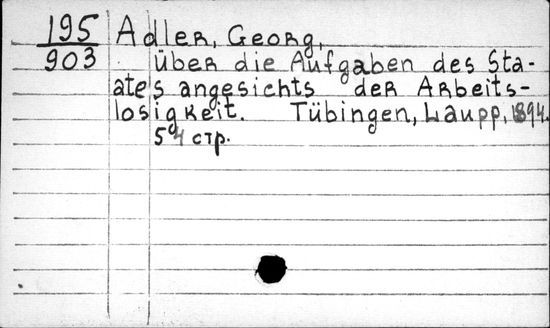 195 Adler, Georg,
903 Über die Aufgaben des Sta-
ates angesichts der Arbeits-
losigkeit. Tübingen, Laupp, 1894.
54 стр.